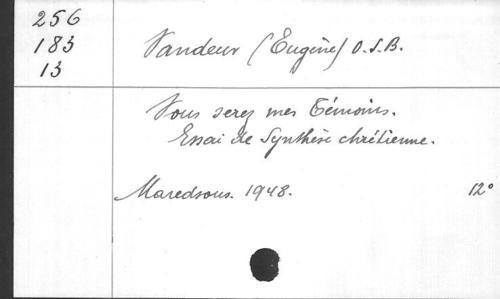 256
183
13
Vandeur (Eugène) O.S.B.
Vous serez mes Témoins.
Essai de Synthèse chrétienne.
Maredsous. 1948. 12°